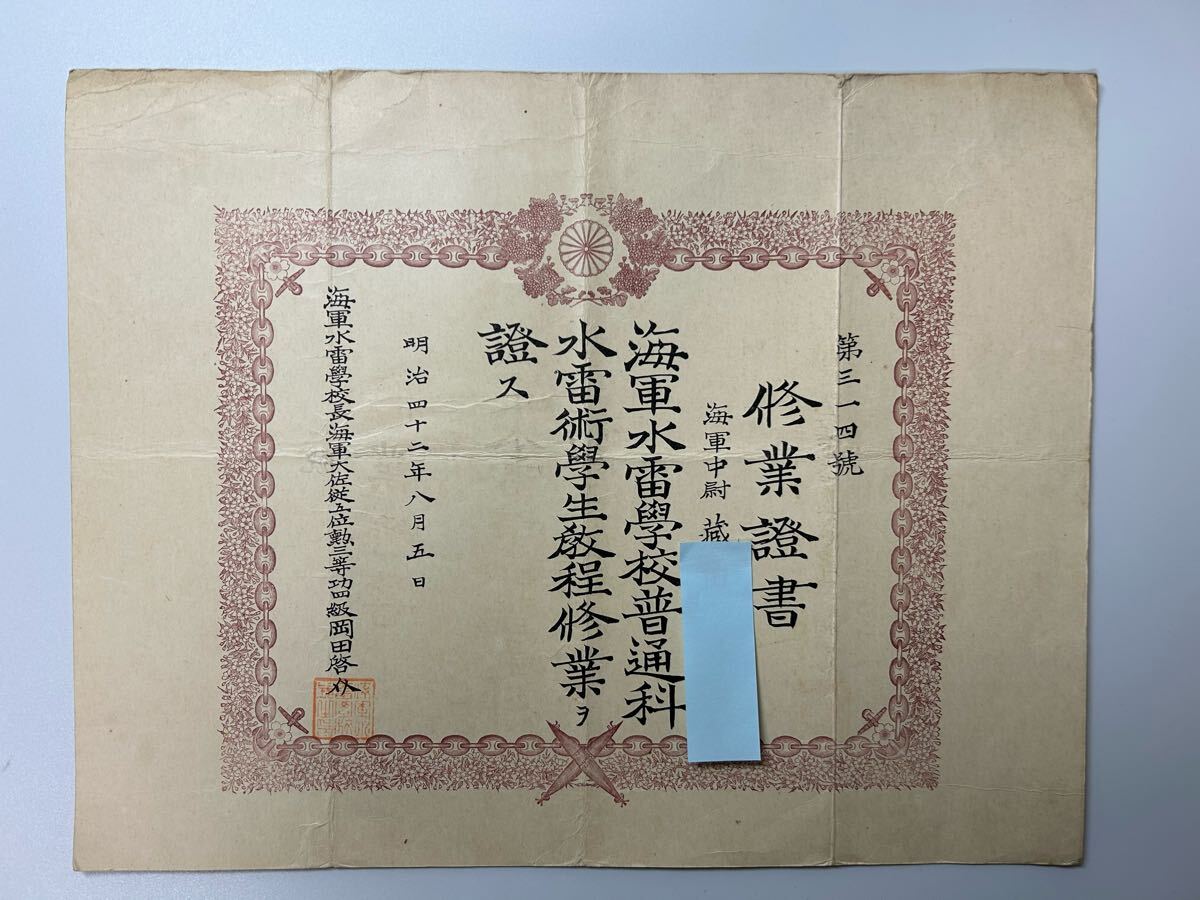 第三一四號
修業證書
海軍中尉 藏
海軍水雷學校普通科
水雷術學生教程修業ヲ
證ス
明治四十二年八月五日
海軍水雷學校長海軍大佐從五位勲三等功四級岡田啓介